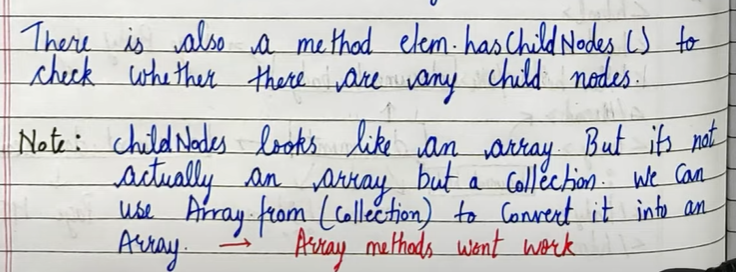 There is also a method elem.hasChildNodes () to
check whether there are any child nodes.
Note: childNodes looks like an array. But its not
actually an array but a collection. We can
use Array.from (collection) to convert it into an
Array. → Array methods wont work